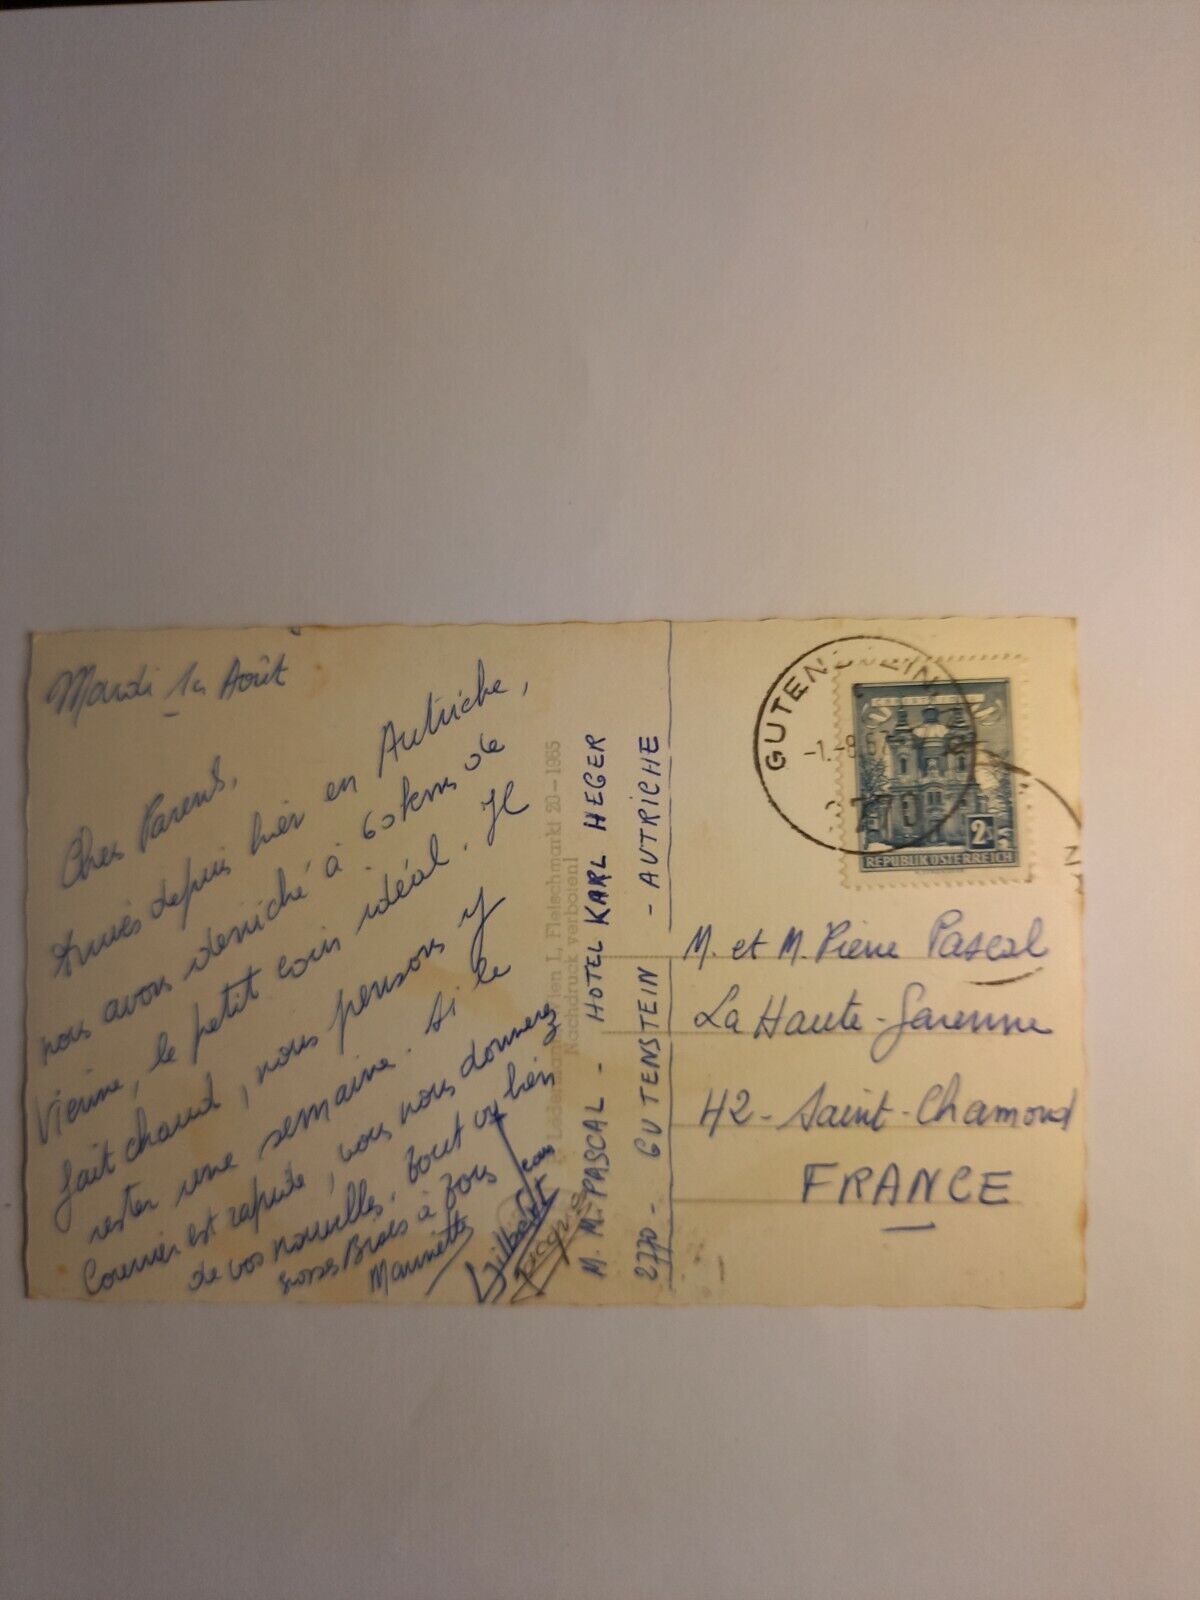 Mardi 1er Août
Chers Parents,
Arrivés depuis hier en Autriche,
nous avons déniché à 60 kms de
Vienne, le petit coin idéal. Il
fait chaud, nous pensons y
rester une semaine. Si le
Courrier est rapide, vous nous donnerez
de vos nouvelles. Tout va bien
grosses Bises à Tous
Marinette
Gilbert
M. M. PASCAL - HOTEL KARL HEGER
2770 - GUTENSTEIN - AUTRICHE
Fleischmarkt 20 - 1965
Nachdruck verboten!
GUTENSTEIN
-1.-8.67
2
REPUBLIK ÖSTERREICH
M. et M. Pierre Pascal
La Haute-Garenne
42 - Saint-Chamond
FRANCE